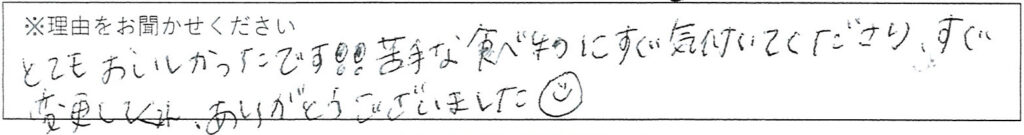 ※理由をお聞かせください
とてもおいしかったです!!苦手な食べ物にすぐ気付いてくださり、すぐ
変更してくれ、ありがとうございました☺